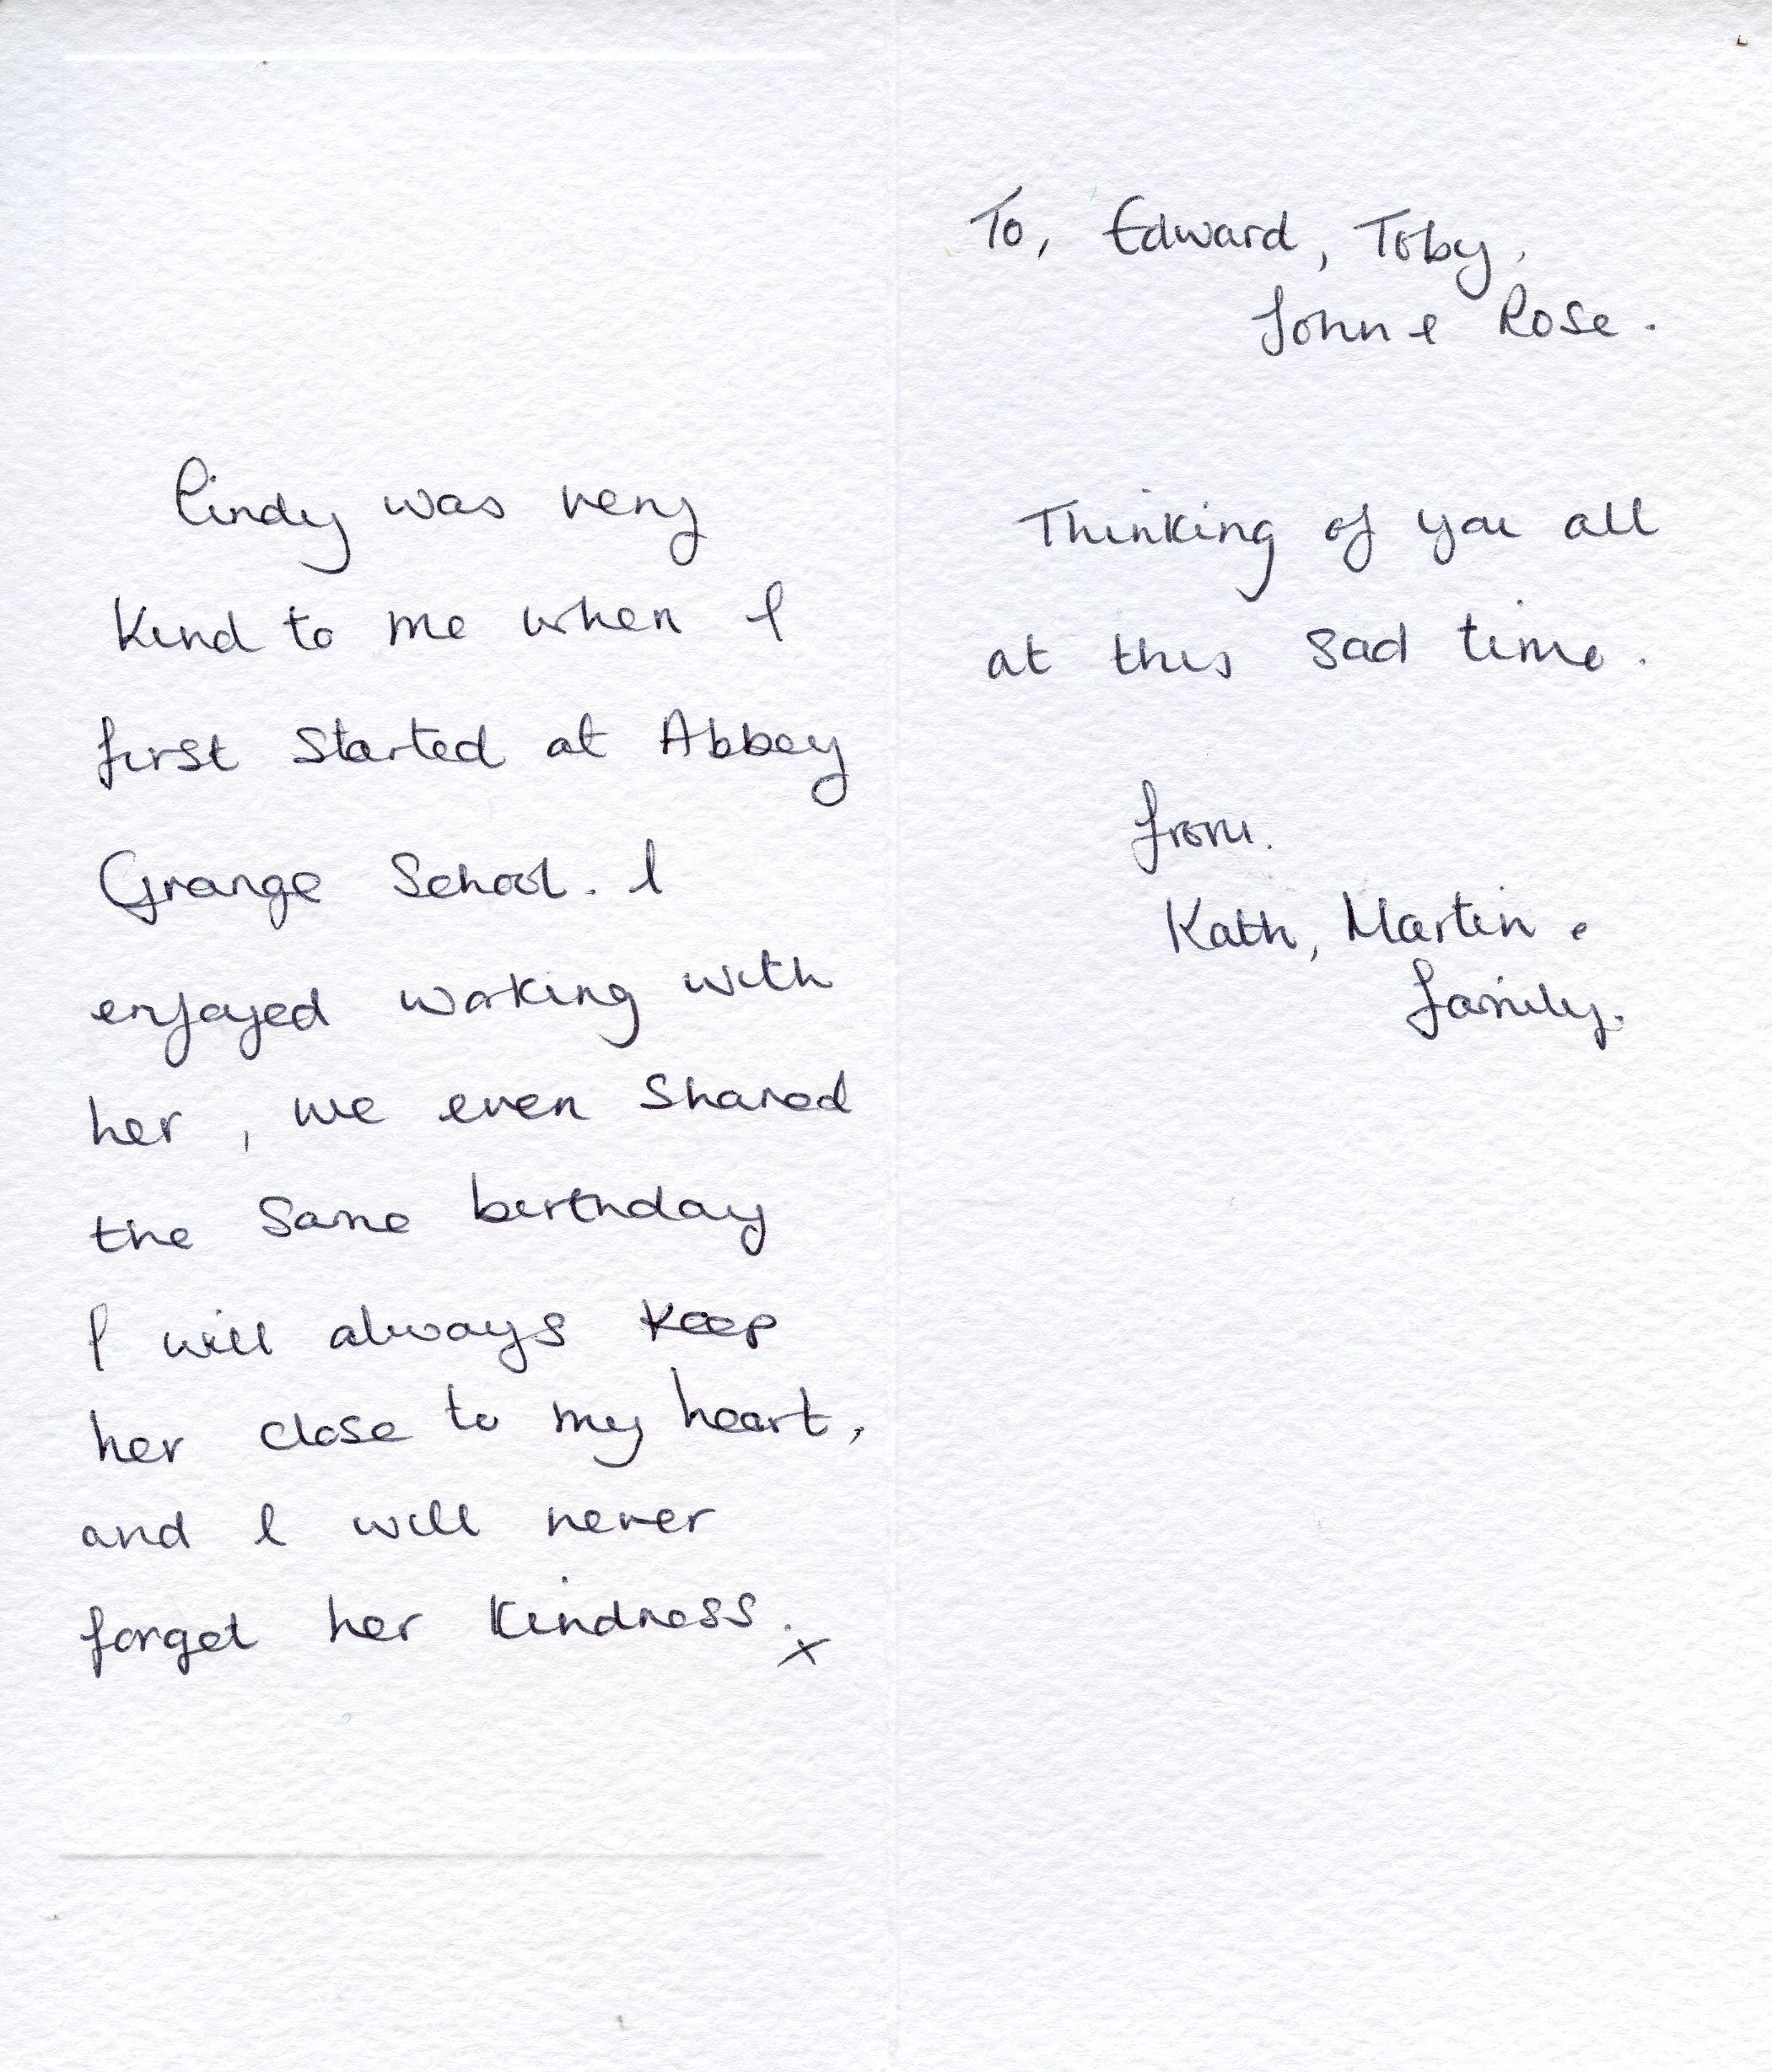 was very
kind to me when I
first started at Abbey
Grange School. I
enjoyed working with
her, we even shared
the same birthday
I will always keep
her close to my heart,
and I will never
forget her kindness. x
To, Edward, Toby,
John & Rose.
Thinking of you all
at this sad time.
from.
Kath, Martin &
family.